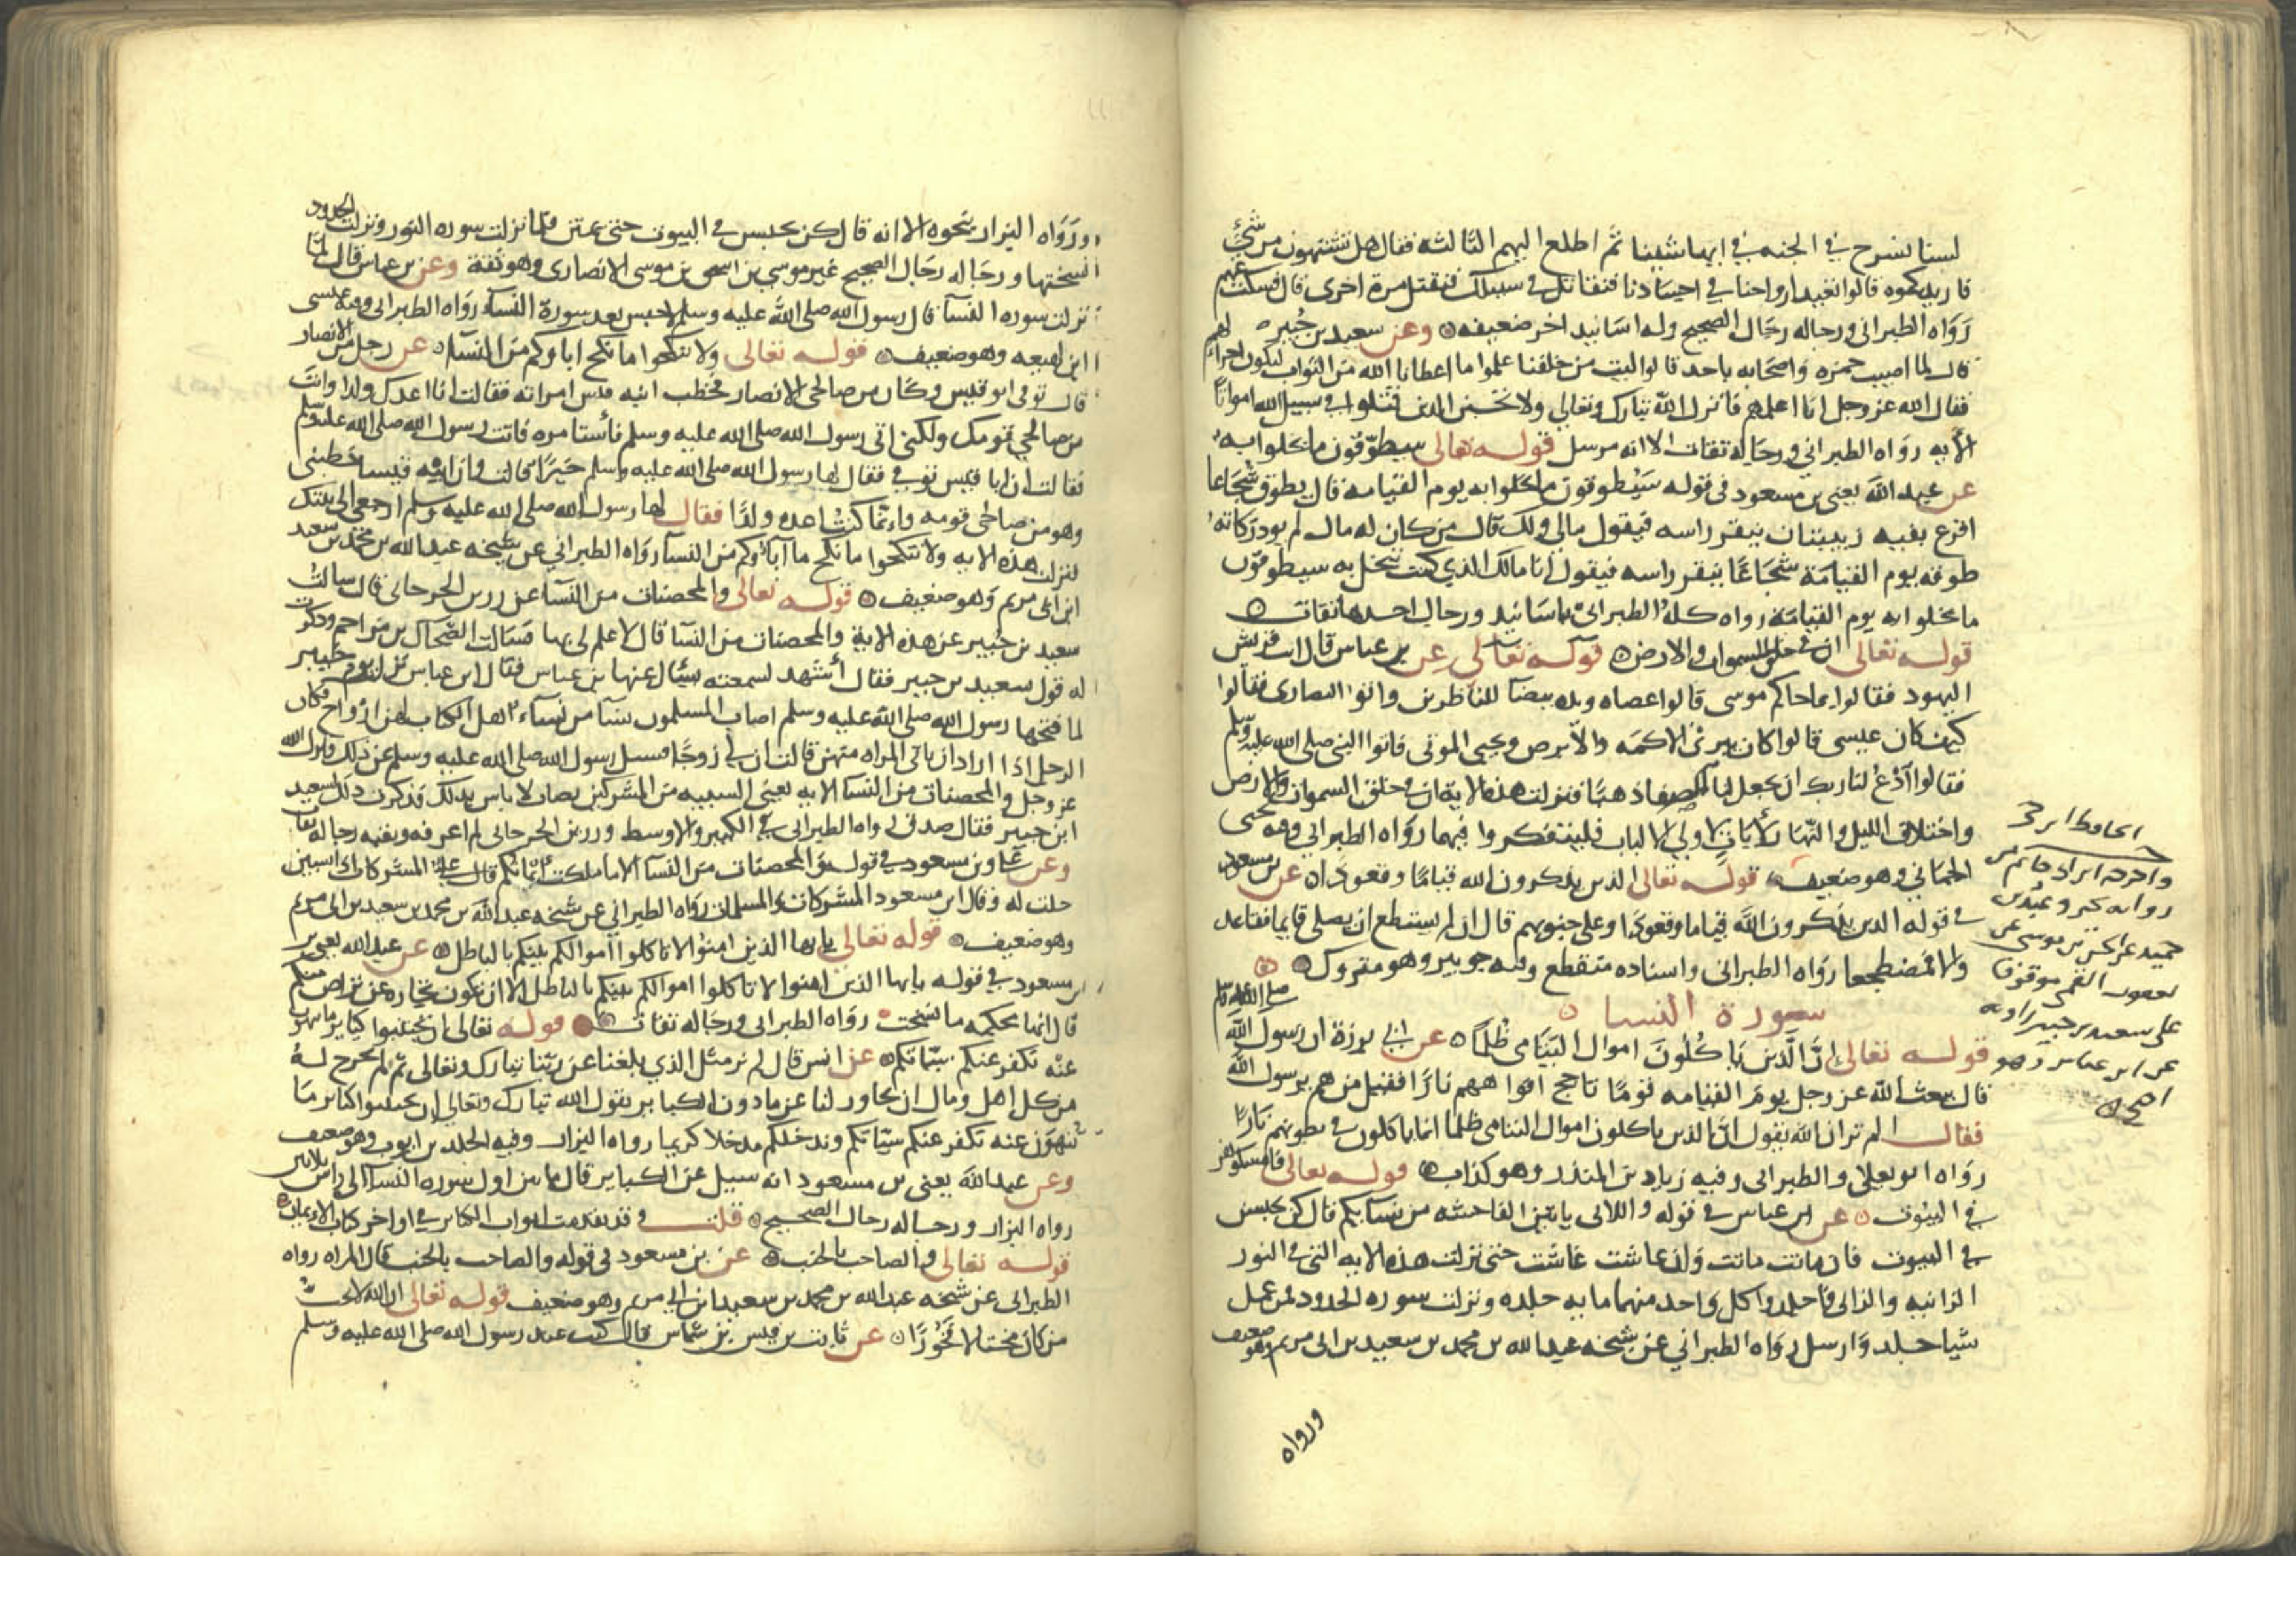 لسنا نسرح في الجنه في ايها شينا ثم اطلع اليهم الثالثه فقال هل تشتهون من شيء
فازيدكموه قالوا تعيد ارواحنا في اجسادنا فنقاتل في سبيلك فنقتل مرة اخرى قال فسكت عنهم
رواه الطبراني ورجاله رجال الصحيح وله اسانيد اخر ضعيفه وعن سعيد بن جبير
قال لما اصيب حمزه واصحابه باحد قالوا ليت من خلفنا علموا ما اعطانا الله من الثواب ليكون اجرا لهم
فقال الله عز وجل انا اعلمهم فانزل الله تبارك وتعالى ولا تحسبن الذين قتلوا في سبيل الله امواتا
الايه رواه الطبراني ورجاله ثقات الا انه مرسل قوله تعالى سيطوقون ما بخلوا به
عن عبد الله يعني بن مسعود في قوله سيطوقون ما بخلوا به يوم القيامه قال يطوق شجاعا
اقرع بفيه زبيبتان ينقر راسه فيقول مالي ولك قال من كان له مال لم يود زكاته
طوقه يوم القيامة شجاعا ينقر راسه فيقول انا مالك الذي كنت تبخل به سيطوقون
ما بخلوا به يوم القيامة رواه كله الطبراني باسانيد ورجال احدها ثقات
قوله تعالى ان في خلق السموات والارض قوله تعالى عن بن عباس قال اتت قريش
اليهود فقالوا بما جاكم موسى قالوا عصاه ويده بيضا للناظرين واتوا النصارى فقالوا
كيف كان عيسى قالوا كان يبرئ الاكمه والابرص ويحيي الموتى فاتوا النبي صلى الله عليه وسلم
فقالوا ادع لنا ربك ان يجعل لنا الصفا ذهبا فنزلت هذه الاية ان في خلق السموات والارض
واختلاف الليل والنهار لآيات لاولي الالباب فليتفكروا فيها رواه الطبراني وفيه يحيى
الحماني وهو ضعيف قوله تعالى الذين يذكرون الله قياما وقعودا عن بن مسعود
في قوله الذين يذكرون الله قياما وقعودا وعلى جنوبهم قال ان لم يستطع ان يصلي قايما فقاعد
والا فمضطجعا رواه الطبراني واسناده منقطع وفيه جويبر وهو متروك
سورة النسا
قوله تعالى ان الذين ياكلون اموال اليتامى ظلما عن ابي برزة ان رسول الله صلى الله عليه وسلم
قال يبعث الله عز وجل يوم القيامه قوما تاجج افواههم نارا فقيل من هم يرسول الله
فقال الم تر ان الله يقول ان الذين ياكلون اموال اليتامى ظلما انما ياكلون في بطونهم نارا
رواه ابو يعلى والطبراني وفيه زياد بن المنذر وهو كذاب قوله تعالى فامسكوهن
في البيوت عن ابن عباس في قوله واللاتي ياتين الفاحشه من نسايكم قال كن يحبسن
في البيوت فان ماتت ماتت وان عاشت عاشت حتى نزلت هذه الايه التي في النور
الزانيه والزاني فاجلدوا كل واحد منهما مايه جلده ونزلت سوره الحدود فمن عمل
شيا جلد وارسل رواه الطبراني عن شيخه عبد الله بن محمد بن سعيد بن ابي مريم وهو ضعيف
ورواه
الحافظ ابن حجر
واخرجه ابن ابي حاتم من
حميد عن
علي سعيد بن جبير
عن ابن عباس وهو
اصح
ورواه البزار بنحوه الا انه قال كن يحبسن في البيوت حتى يمتن فلما نزلت سوره النور ونزلت الحدود
نسختها ورجاله رجال الصحيح غير موسى بن اسحق بن موسى الانصاري وهو ثقة وعن بن عباس قال لما
نزلت سوره النسا قال رسول الله صلى الله عليه وسلم لا حبس بعد سورة النسا رواه الطبراني وفيه عيسى
ابن لهيعه وهو ضعيف قوله تعالى ولا تنكحوا ما نكح اباوكم من النسا عن رجل من الانصار
قال توفي ابو قيس وكان من صالحي الانصار فخطب ابنه قيس امراته فقالت انا اعدك ولدا وانت
من صالحي قومك ولكني اتي رسول الله صلى الله عليه وسلم فأستامره فاتت رسول الله صلى الله عليه وسلم
فقالت ان ابا قيس توفي فقال لها رسول الله صلى الله عليه وسلم خيرا قالت وان ابنه قيسا خطبني
وهو من صالحي قومه وانما كنت اعده ولدا فقال لها رسول الله صلى الله عليه وسلم ارجعي الى بيتك
لنزلت هذه الايه ولا تنكحوا ما نكح ما آباؤكم من النسا رواه الطبراني عن شيخه عبد الله بن محمد بن سعيد
ابن ابي مريم وهو ضعيف قوله تعالى والمحصنات من النسا عن رزين الجرجاني قال سالت
سعيد بن جبير عن هذه الاية والمحصنات من النسا قال لا علم لي بها فسالت الضحاك بن مزاحم وذكرت
له قول سعيد بن جبير فقال أشهد لسمعته يسال عنها بن عباس فقال ابن عباس نزلت يوم خيبر
لما فتحها رسول الله صلى الله عليه وسلم اصاب المسلمون نسا من نساء اهل الكتاب لهن ازواج فكان
الرجل اذا اراد ان ياتي المراه منهن قالت ان لي زوجا فسيل رسول الله صلى الله عليه وسلم عن ذلك فانزل الله
عز وجل والمحصنات من النسا الايه يعني السبيه من المشركين تصاب لا باس بذلك فذكرت ذلك لسعيد
ابن جبير فقال صدق رواه الطبراني في الكبير والاوسط ورزين الجرجاني لم اعرفه وبقيه رجاله ثقات
وعن علي وبن مسعود في قوله والمحصنات من النسا الا ما ملكت ايمانكم قال علي المشركات اذا سبين
حلت له وقال ابن مسعود المشركات والمسلمات رواه الطبراني عن شيخه عبد الله بن محمد بن سعيد بن ابي مريم
وهو ضعيف قوله تعالى يايها الذين امنوا لا تاكلوا أموالكم بينكم بالباطل عن عبد الله يعني بن
مسعود في قوله يايها الذين امنوا لا تاكلوا اموالكم بينكم بالباطل الا ان تكون تجارة عن تراض منكم
قال انها محكمه ما نسخت رواه الطبراني ورجاله ثقات قوله تعالى ان تجتنبوا كباير ما تنهون
عنه نكفر عنكم سيئاتكم عن انس قال لم نر مثل الذي بلغنا عن ربنا تبارك وتعالى ثم لم نخرج له
من كل اهل ومال ان تجاوز لنا عن ما دون الكباير يقول الله تبارك وتعالى ان تجتنبوا كبائر ما
تنهون عنه نكفر عنكم سيئاتكم وندخلكم مدخلا كريما رواه البزار وفيه الجلد بن ايوب وهو ضعيف
وعن عبد الله يعني بن مسعود انه سيل عن الكباير قال ما بين اول سوره النسا الى راس ثلاثين
رواه البزار ورجاله رجال الصحيح قلت وقد تقدمت ابواب الكبائر في اواخر كتاب الايمان
قوله تعالى والصاحب بالجنب عن بن مسعود في قوله والصاحب بالجنب قال المراه رواه
الطبراني عن شيخه عبد الله بن محمد بن سعيد بن ابي مريم وهو ضعيف قوله تعالى ان الله لا يحب
من كان مختالا فخورا عن ثابت بن قيس بن شماس قال كنت عند رسول الله صلى الله عليه وسلم